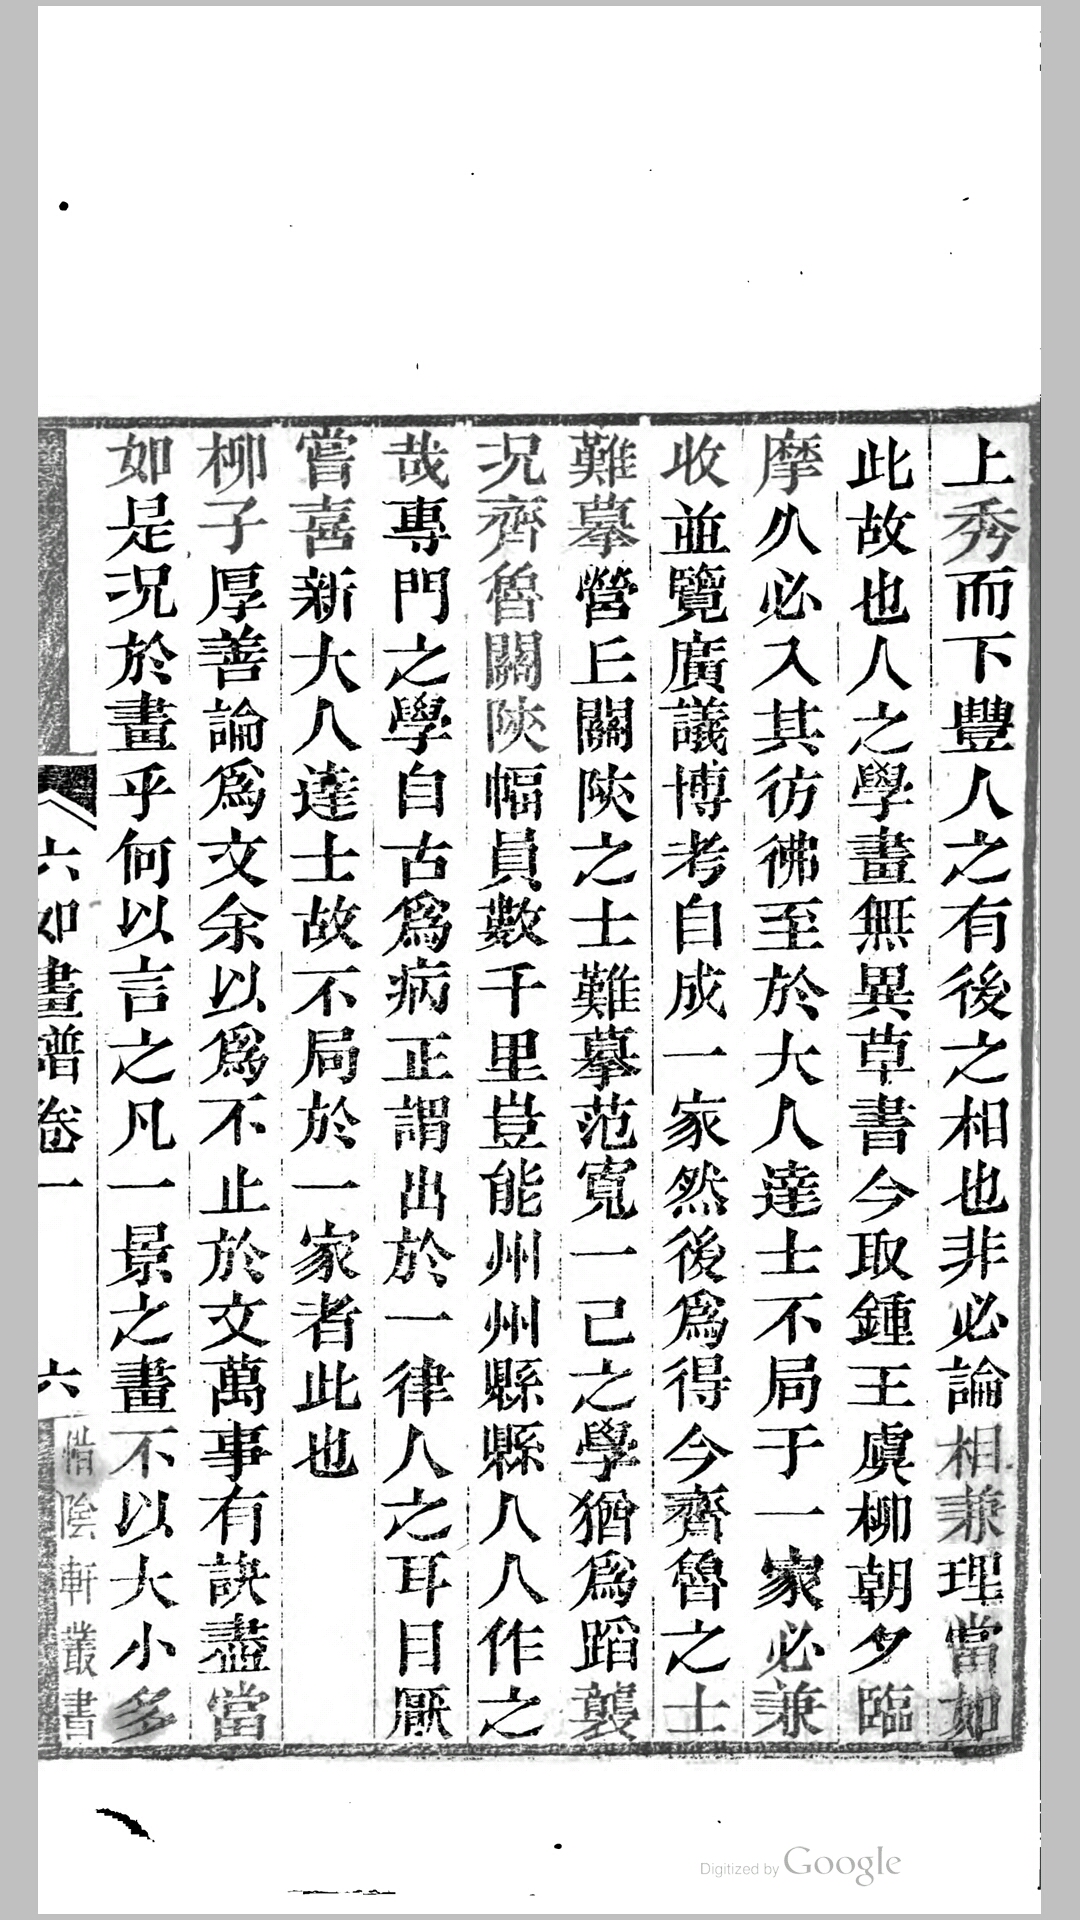 上秀而下豐人之有後之相也非必論相兼理當如
此故也人之學畫無異草書今取鍾王虞柳朝夕臨
摩久必入其彷彿至於大人達士不局于一家必兼
收並覽廣議博考自成一家然後爲得今齊魯之士
難摹營丘關陝之士難摹范寬一己之學猶爲蹈襲
况齊魯關陝幅員數千里豈能州州縣縣人人作之
哉專門之學自古爲病正謂出於一律人之耳目厭
嘗喜新大人達士故不局於一家者此也
柳子厚善論爲文余以爲不止於文萬事有訣盡當
如是况於畫乎何以言之凡一景之畫不以大小多
六如畫譜卷一
六
惜陰軒叢書
Digitized by Google